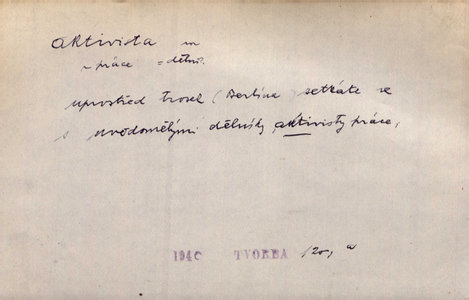 aktivista m
~ práce = dělní.
uprostřed trosek (Berlína) setkáte se
s uvědomělými dělníky, aktivisty práce,
194 TVORBA 120, a